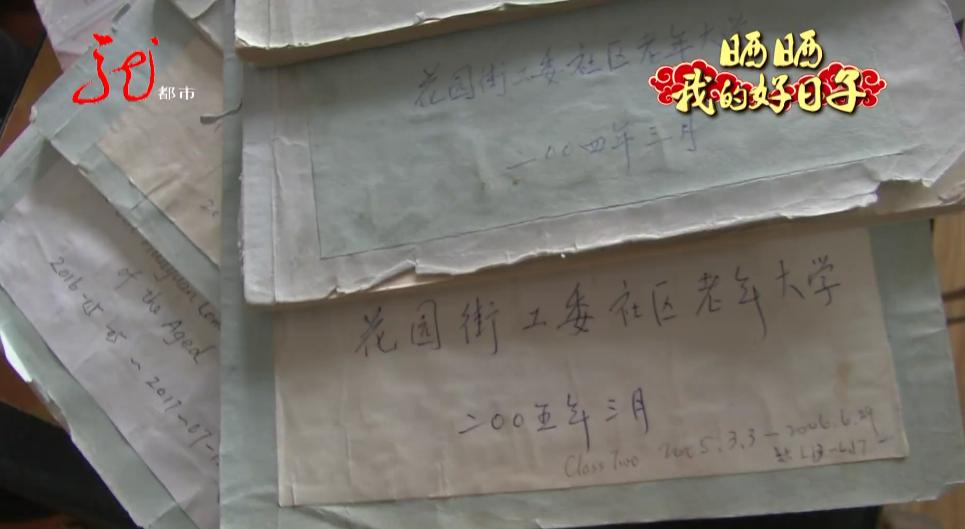 龙
都市
晒晒
我的好日子
花园街工委社区老年大学
二〇〇四年三月
花园街工委社区老年大学
二〇〇五年三月
Class Two 2005.3.3－2006.6.29
of the Aged